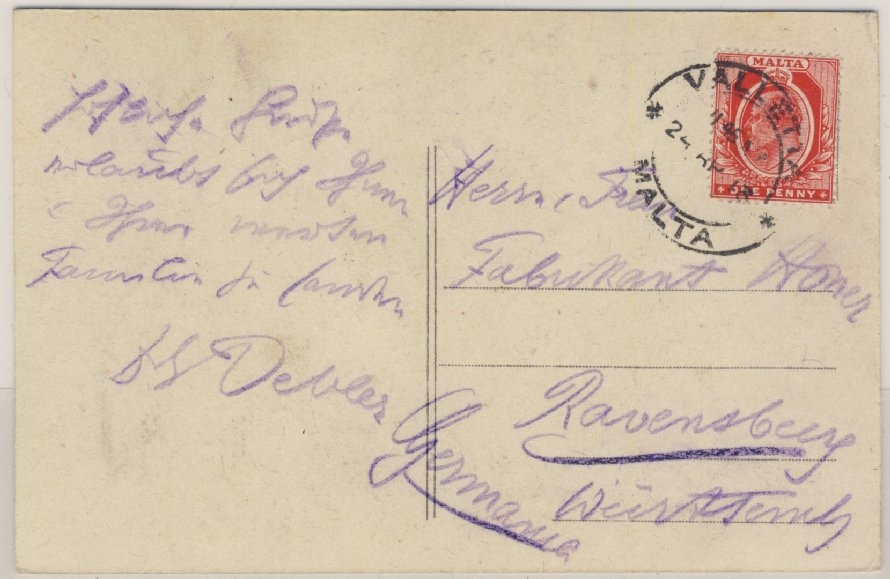 erlaubt sich Ihnen
& Ihrer werten
Familie zu senden
Debler
MALTA
ONE PENNY
VALLETTA
MALTA
Herrn, Frau
Fabrikant Honer
Ravensburg
Württembg
Germania